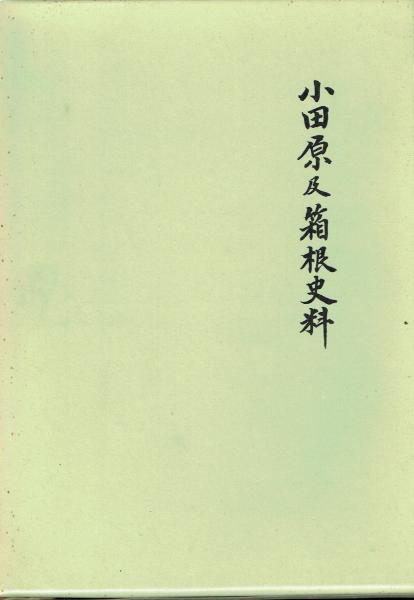 小田原及箱根史料